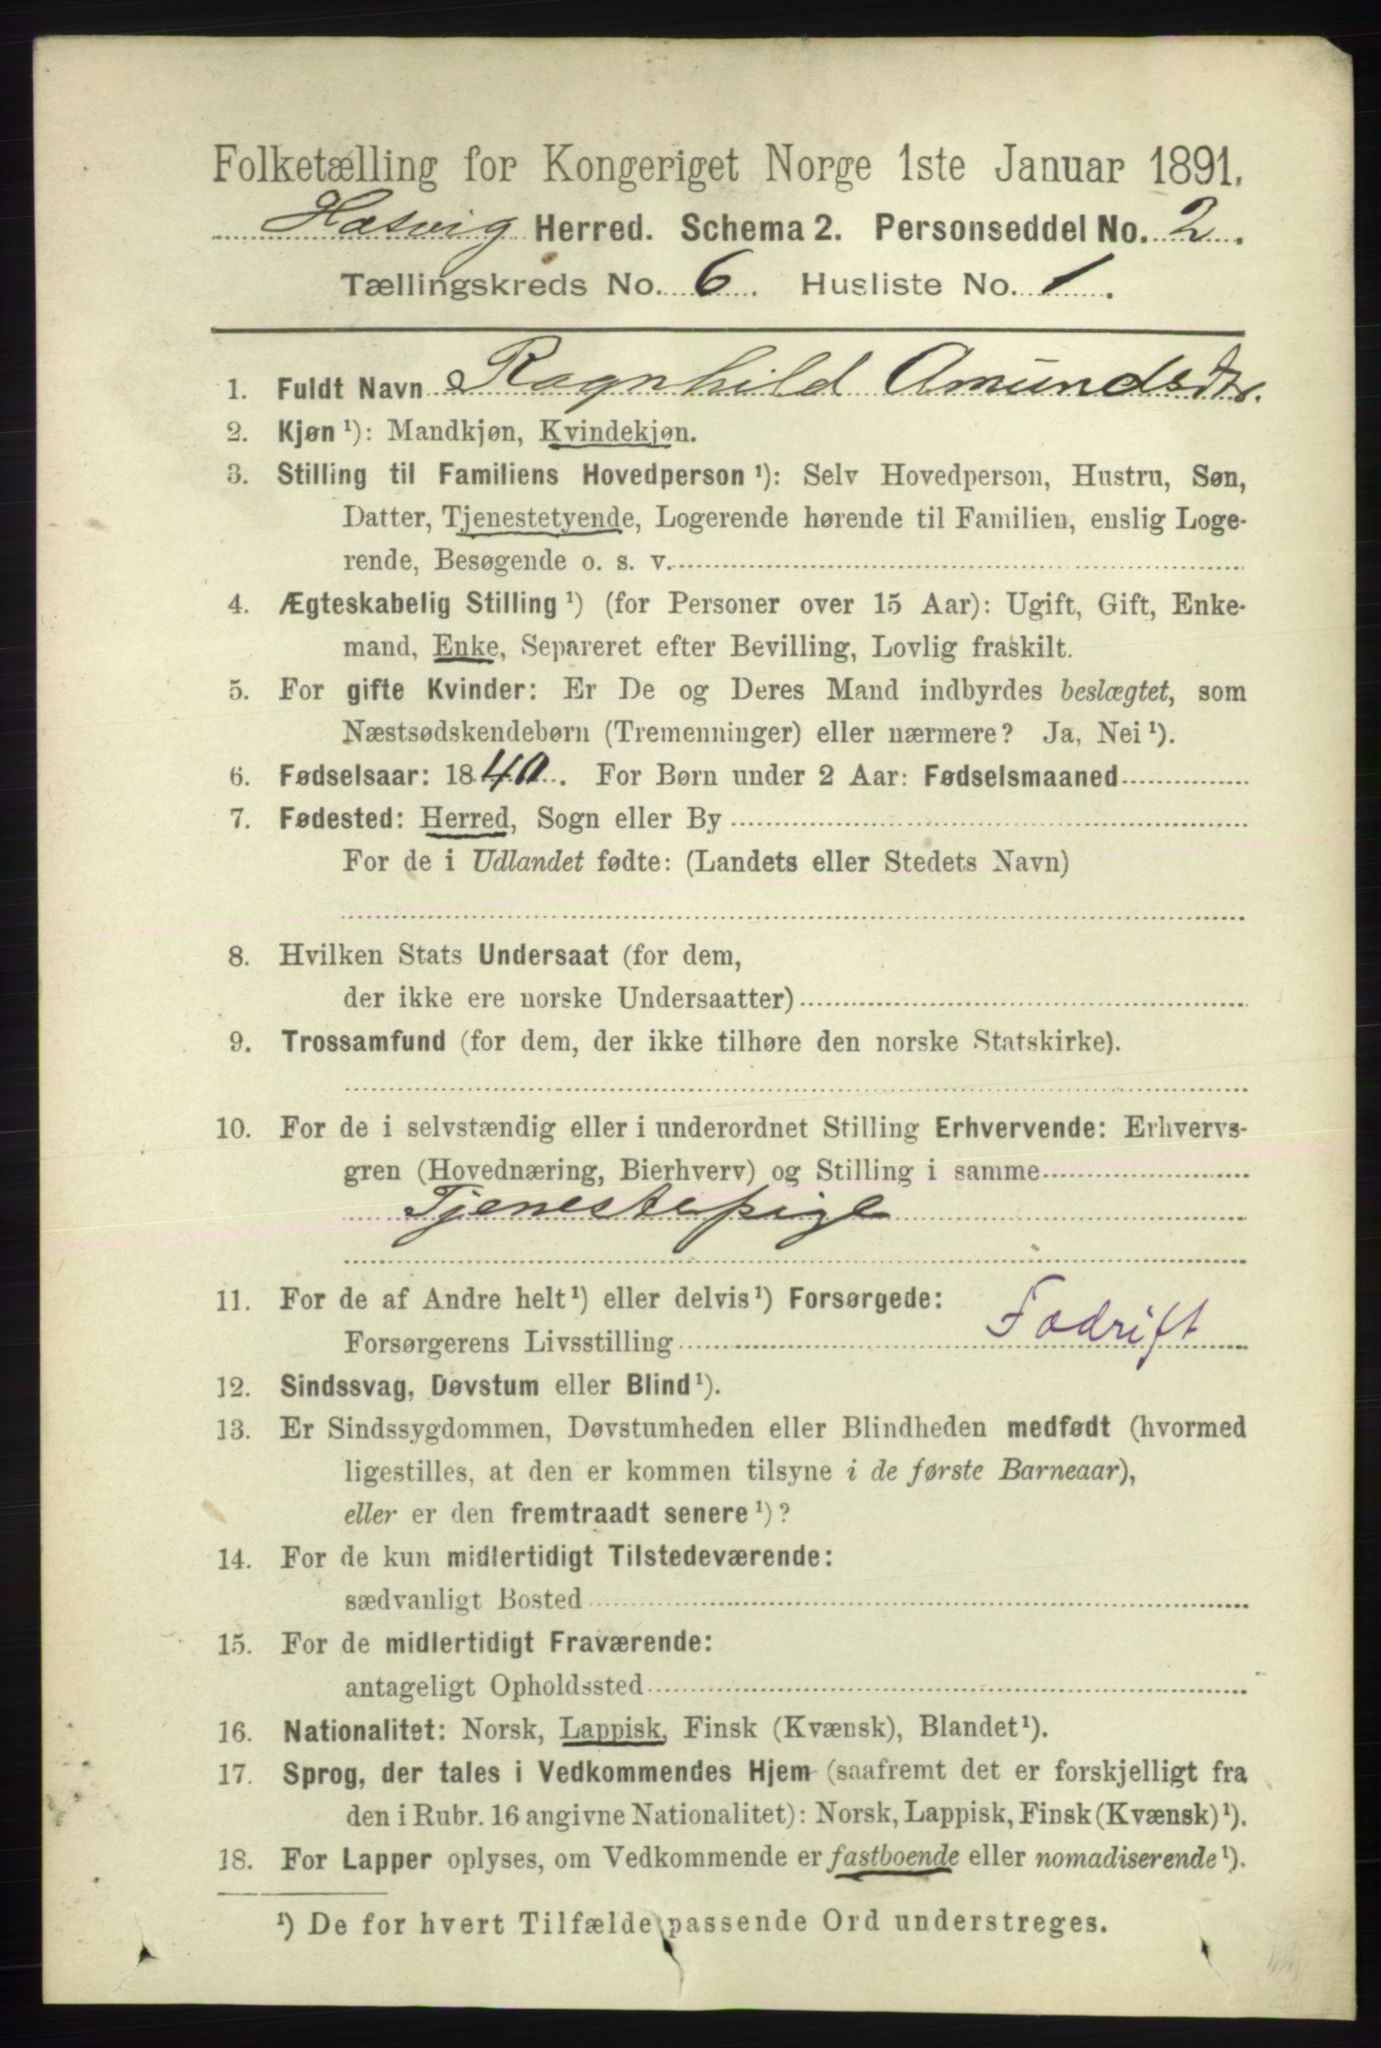 Folketælling for Kongeriget Norge 1ste Januar 1891.
Hasvig Herred. Schema 2. Personseddel No. 2.
Tællingskreds No. 6. Husliste No. 1.
1. Fuldt Navn Ragnhild Amundsdtr.
2. Kjøn ¹): Mandkjøn, Kvindekjøn.
3. Stilling til Familiens Hovedperson ¹): Selv Hovedperson, Hustru, Søn,
Datter, Tjenestetyende, Logerende hørende til Familien, enslig Loge-
rende, Besøgende o. s. v.
4. Ægteskabelig Stilling ¹) (for Personer over 15 Aar): Ugift, Gift, Enke-
mand, Enke, Separeret efter Bevilling, Lovlig fraskilt.
5. For gifte Kvinder: Er De og Deres Mand indbyrdes beslægtet, som
Næstsødskendebørn (Tremenninger) eller nærmere? Ja, Nei ¹).
6. Fødselsaar: 1840. For Børn under 2 Aar: Fødselsmaaned
7. Fødested: Herred, Sogn eller By
For de i Udlandet fødte: (Landets eller Stedets Navn)
8. Hvilken Stats Undersaat (for dem,
der ikke ere norske Undersaatter)
9. Trossamfund (for dem, der ikke tilhøre den norske Statskirke).
10. For de i selvstændig eller i underordnet Stilling Erhvervende: Erhvervs-
gren (Hovednæring, Bierhverv) og Stilling i samme
Tjenestepige
11. For de af Andre helt ¹) eller delvis ¹) Forsørgede:
Forsørgerens Livsstilling Fadrift
12. Sindssvag, Døvstum eller Blind ¹).
13. Er Sindssygdommen, Døvstumheden eller Blindheden medfødt (hvormed
ligestilles, at den er kommen tilsyne i de første Barneaar),
eller er den fremtraadt senere ¹)?
14. For de kun midlertidigt Tilstedeværende:
sædvanligt Bosted
15. For de midlertidigt Fraværende:
antageligt Opholdssted
16. Nationalitet: Norsk, Lappisk, Finsk (Kvænsk), Blandet ¹).
17. Sprog, der tales i Vedkommendes Hjem (saafremt det er forskjelligt fra
den i Rubr. 16 angivne Nationalitet): Norsk, Lappisk, Finsk (Kvænsk) ¹).
18. For Lapper oplyses, om Vedkommende er fastboende eller nomadiserende ¹).
¹) De for hvert Tilfælde passende Ord understreges.